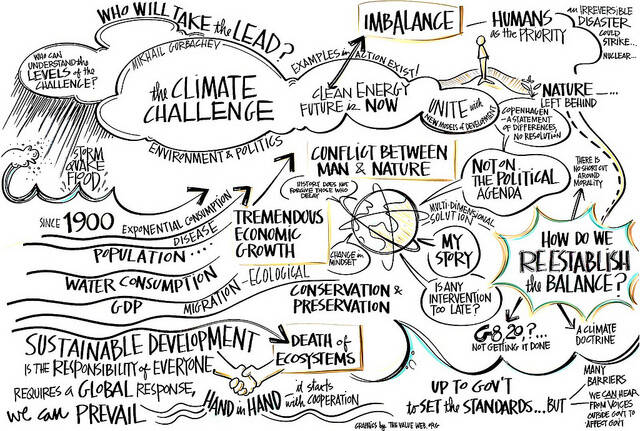 WHO WILL TAKE the LEAD?
MIKHAIL GORBACHEV
WHO CAN
UNDERSTAND the
LEVELS of the
CHALLENGE?
the CLIMATE
CHALLENGE
EXAMPLES in ACTION EXIST!
CLEAN ENERGY
FUTURE is NOW
ENVIRONMENT & POLITICS
IMBALANCE
HUMANS
as the PRIORITY
an IRREVERSIBLE
DISASTER
COULD
STRIKE...
NUCLEAR...
NATURE
LEFT BEHIND
UNITE with
NEW MODELS of DEVELOPMENT
COPENHAGEN
- A STATEMENT
OF DIFFERENCES,
NO RESOLUTION
STORM
QUAKE
FLOOD
CONFLICT BETWEEN
MAN & NATURE
HISTORY DOES NOT
FORGIVE THOSE WHO
DELAY
NOT ON
THE POLITICAL
AGENDA
THERE IS
NO SHORT CUT
AROUND
MORALITY
SINCE 1900
EXPONENTIAL CONSUMPTION
DISEASE
POPULATION ....
WATER CONSUMPTION
GDP
MIGRATION - ECOLOGICAL
TREMENDOUS
ECONOMIC
GROWTH
CHANGE in
MINDSET
MULTI-DIMENSIONAL
SOLUTION
MY
STORY
IS ANY
INTERVENTION
TOO LATE?
CONSERVATION &
PRESERVATION
HOW DO WE
REESTABLISH
the BALANCE?
G-8, 20, ?...
NOT GETTING IT DONE
A CLIMATE
DOCTRINE
DEATH of
ECOSYSTEMS
SUSTAINABLE DEVELOPMENT
IS THE RESPONSIBILITY of EVERYONE,
REQUIRES A GLOBAL RESPONSE,
we can PREVAIL
HAND in HAND
it starts
with COOPERATION
UP TO GOV'T
to SET the STANDARDS...BUT
MANY
BARRIERS
WE CAN HEAR
FROM VOICES
OUTSIDE GOV'T TO
AFFECT GOV'T
GRAPHICS by THE VALUE WEB .ORG